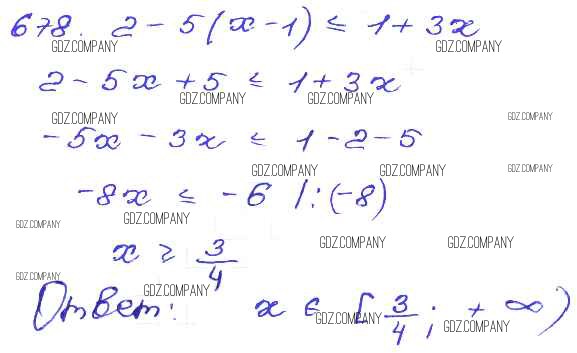 678. 2 - 5(x - 1) ≤ 1 + 3x
GDZ.COMPANY GDZ.COMPANY
2 - 5x + 5 ≤ 1 + 3x
GDZ.COMPANY GDZ.COMPANY
GDZ.COMPANY GDZ.COMPANY
-5x - 3x ≤ 1 - 2 - 5
GDZ.COMPANY GDZ.COMPANY GDZ.COMPANY
-8x ≤ -6 |:(-8)
GDZ.COMPANY GDZ.COMPANY
x ≥ 3/4
GDZ.COMPANY GDZ.COMPANY
GDZ.COMPANY GDZ.COMPANY
Ответ: x ∈ [3/4; +∞)
GDZ.COMPANY GDZ.COMPANY